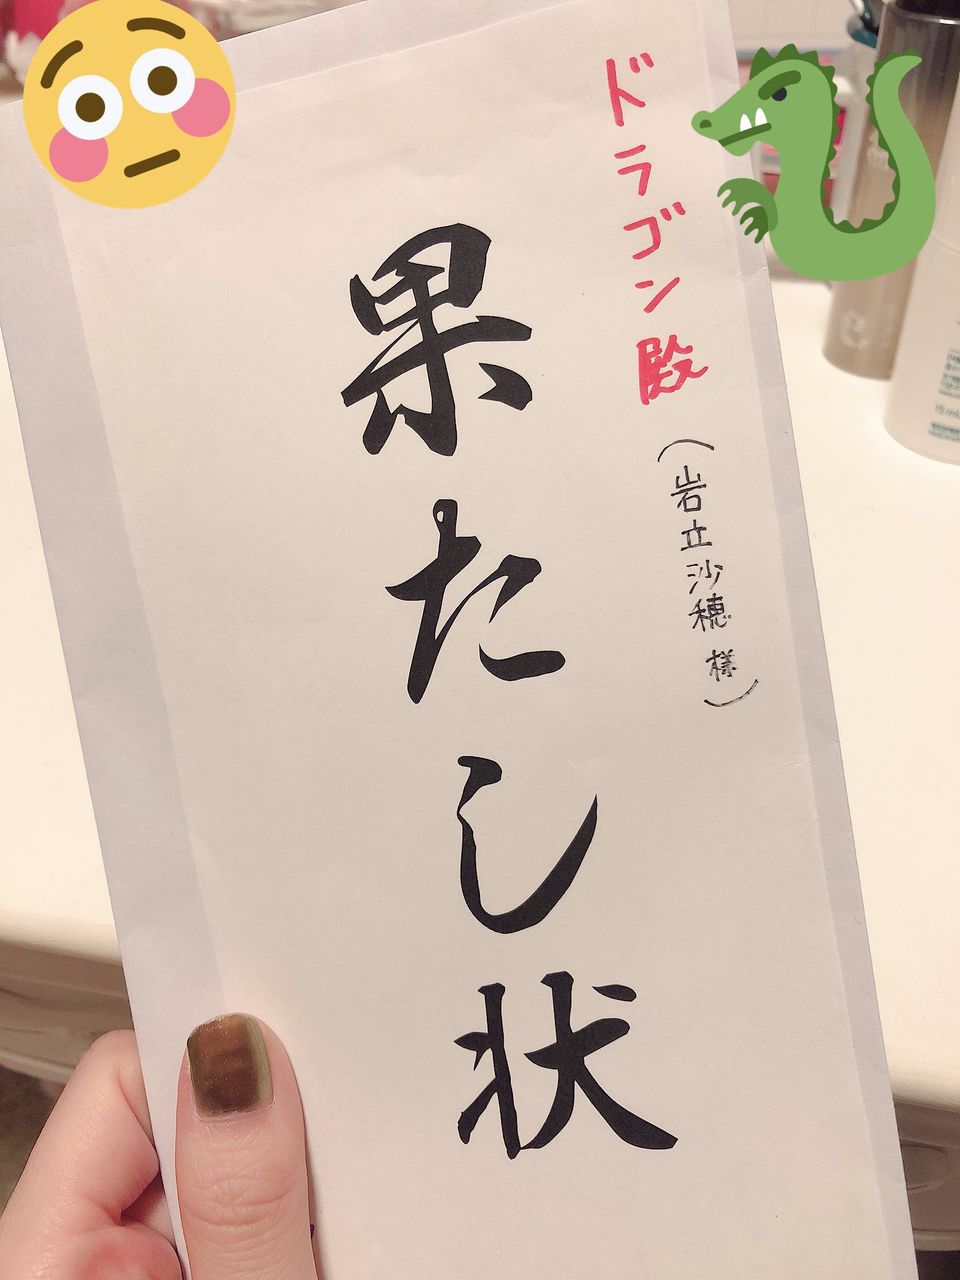 ドラゴン殿
(岩立沙穂 様)
果たし状